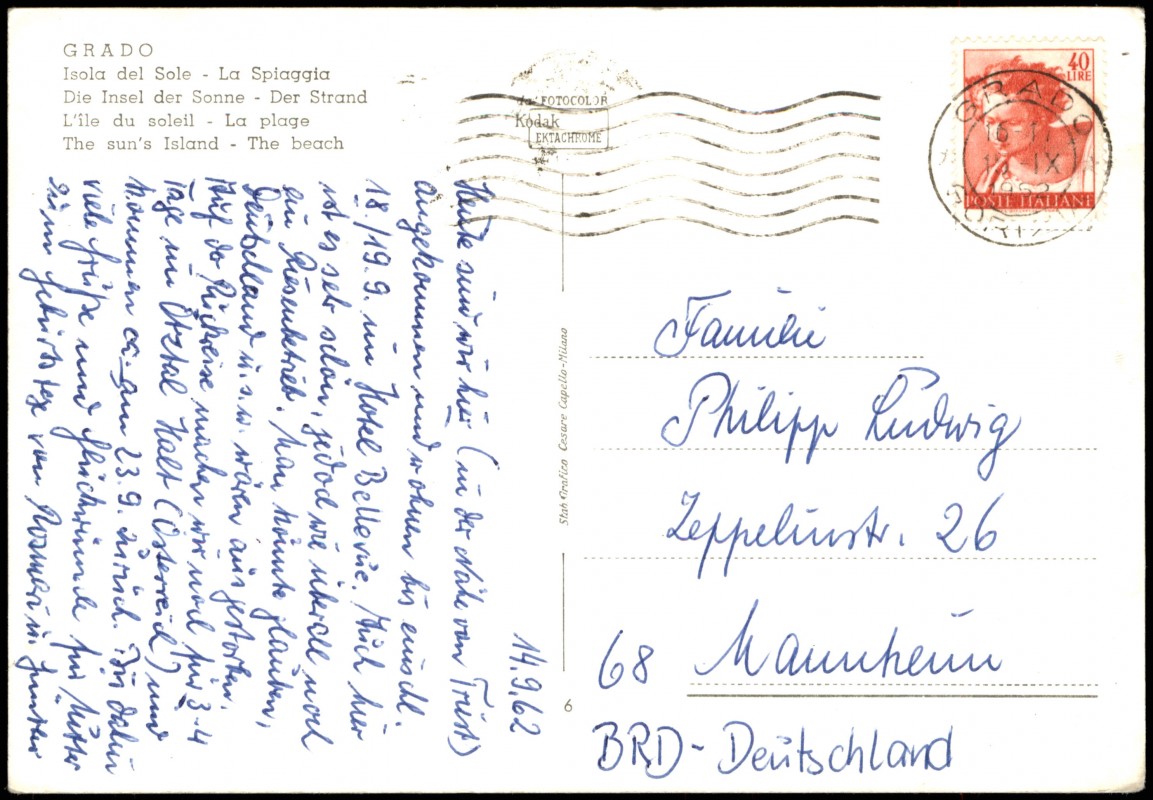 GRADO
Isola del Sole - La Spiaggia
Die Insel der Sonne - Der Strand
L'île du soleil - La plage
The sun's Island - The beach
da FOTOCOLOR
Kodak
EKTACHROME
40
LIRE
POSTE ITALIANE
GRADO
16
IX
1962
14.9.62
Heute sind wir hier (in der Nähe von Triest)
angekommen und wohnen bis einschl.
18./19.9. im Hotel Bellevue. Auch hier
ist es sehr schön, jedoch wie überall noch
ein Riesenbetrieb. Man könnte glauben,
Deutschland u.s.w. wären ausgestorben.
Auf der Rückreise machen wir noch für 3-4
Tage im Ötztal Halt (Österreich) und
kommen ca. am 23.9. zurück. Bis dahin
viele Grüße und Glückwünsche für Mutter
zum Geburtstag von
Familie
Philipp Ludwig
Zeppelinstr. 26
68 Mannheim
BRD-Deutschland
Stab. Grafico Cesare Capello-Milano
6